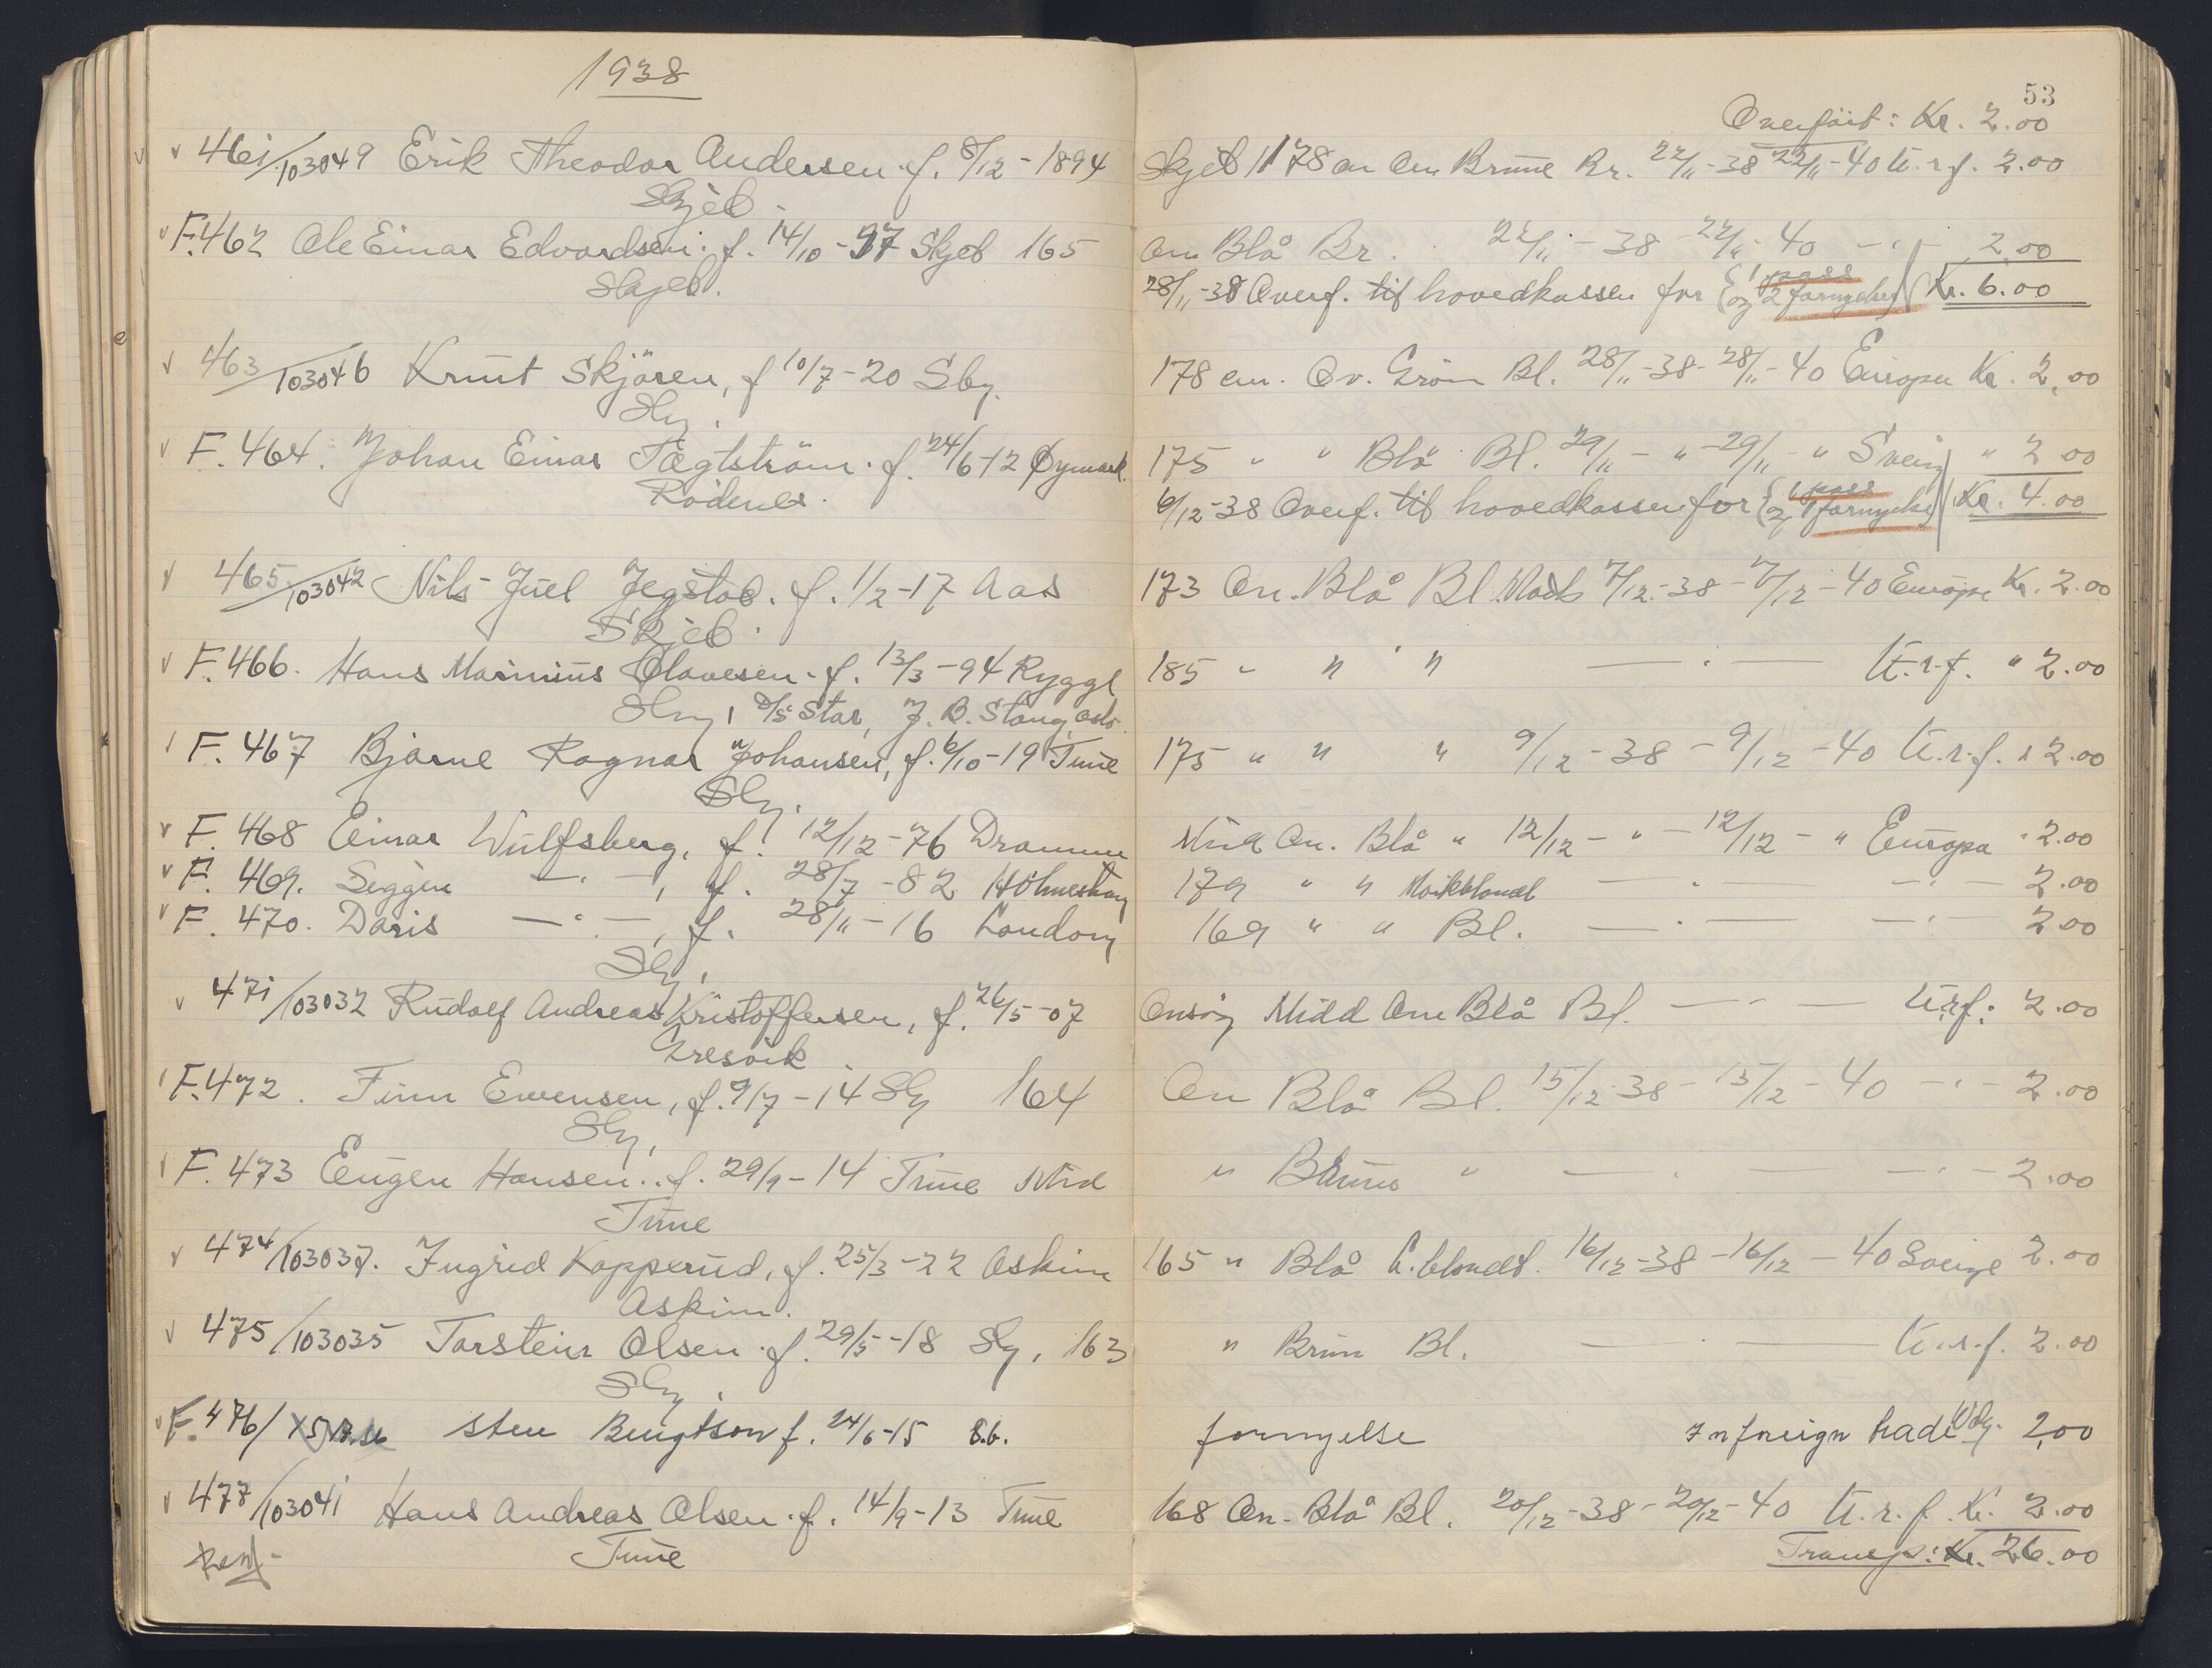 1938
53
Overført: Kr. 2.00
461/103049 Erik Theodor Andersen. f. 8/12-1894 Skjeb 178 cm Brune Br. 22/11-38 22/11-40 U.r.f. 2.00
Skjeb.
F.462 Ole Einar Edvardsen. f. 14/10-97 Skjeb 165 Blå Br. 22/11-38 - 22/11-40 -"- 2.00
Skjeb.
28/11-38 Overf. til hovedkassen for 1 pass og 2 fornyelser Kr. 6.00
463/103046 Knut Skjøren, f 10/7-20 Sbg. 178 cm. Ov. Grøn Bl. 28/11-38-28/11-40 Europa Kr. 2.00
Sbg.
F.464. Johan Einar Tægtström. f. 24/6-12 Øymark. 175 " " Blå Bl. 29/11-"-29/11-" " 2 00
Rødenes.
6/12-38 Overf. til hovedkassen for 1 pass og 1 fornyelse Kr. 4.00
465/103042 Nils Juel Jegstad. f. 1/2-17 Aas 173 On. Blå Bl. 7/12-38-7/12-40 Europa Kr. 2.00
Skjeb.
F.466. Hans Marinius Olavesen. f. 13/3-94 Rygge 185 " " " —"— U.r.f. " 2.00
Sbg, D/S Star, J. B. Stang, Oslo.
F.467 Bjarne Ragnar Johansen, f. 6/10-19 Tune 175 " " " 9/12-38-9/12-40 U.r.f. " 2.00
Sbg.
F.468 Einar Wulfsberg, f. 12/12-76 Dramme Mid On. Blå " 12/12-"-12/12-" Europa " 2.00
F.469. —"—, f. 28/7-82 Holmestrand 179 " " Mørkblondt —"— —"— 2.00
F.470. Doris —"—, f. 28/11-16 London 169 " " Bl. —"— —"— 2.00
Sbg.
471/103032 Rudolf Andreas Kristoffersen, f. 26/5-07 Onsøy Midd On Blå Bl. —"— U.r.f. 2.00
Gresvik
F.472. Finn Evensen, f. 9/7-14 Sbg 164 On Blå Bl. 15/12-38-15/12-40 -"- 2.00
Sbg.
F.473 Eugen Hansen. f. 29/9-14 Tune Mid " Brune " —"— -"- 2.00
Tune
474/103037. Ingrid Kopperud, f. 25/3-22 Askim 165 " Blå L.blondt. 16/12-38-16/12-40 Sverige 2.00
Askim.
475/103035 Torstein Olsen. f. 29/5-18 Sbg, 163 " Brun Bl. —"— U.r.f. 2.00
Sbg.
F.476/ Sten Bengtson f. 24/6-15 S.b. fornyelse In foreign trade 2,00
477/103041 Hans Andreas Olsen. f. 14/9-13 Tune 168 On. Blå Bl. 20/12-38-20/12-40 U.r.f. Kr. 2.00
Tune
Transp: Kr. 26.00